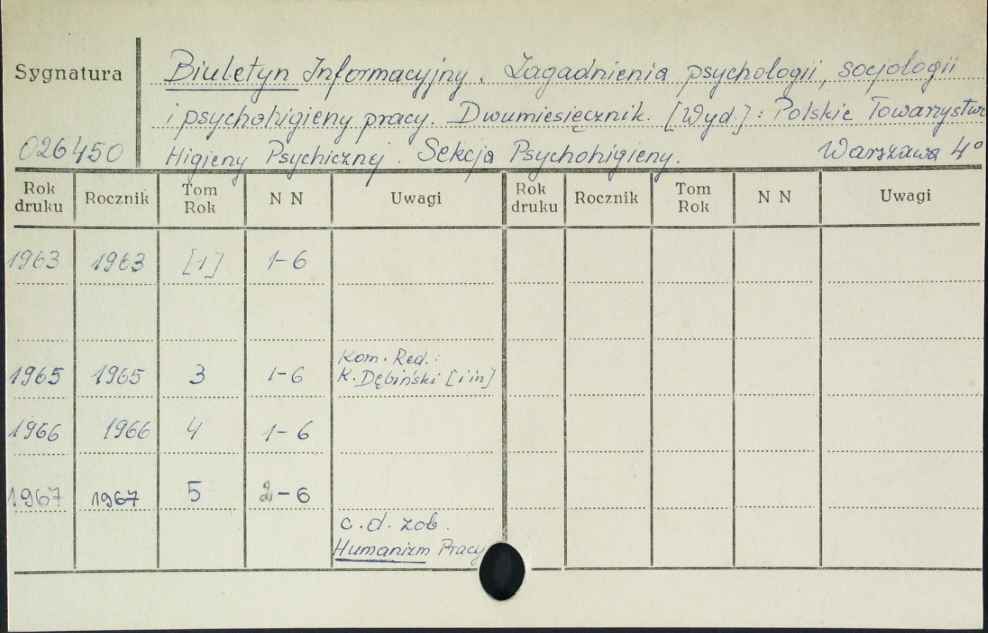 Sygnatura
Biuletyn Informacyjny. Zagadnienia psychologii, socjologii
i psychohigieny pracy. Dwumiesięcznik. [Wyd.]: Polskie Towarzystwo
026450 Higieny Psychicznej. Sekcja Psychohigieny. Warszawa 4°
Rok druku Rocznik Tom Rok N N Uwagi Rok druku Rocznik Tom Rok N N Uwagi
1963 1963 [1] 1-6
Kom. Red.:
1965 1965 3 1-6 K. Dębiński [i in]
1966 1966 4 1-6
1967 1967 5 2-6
c.d. zob.
Humanizm Pracy